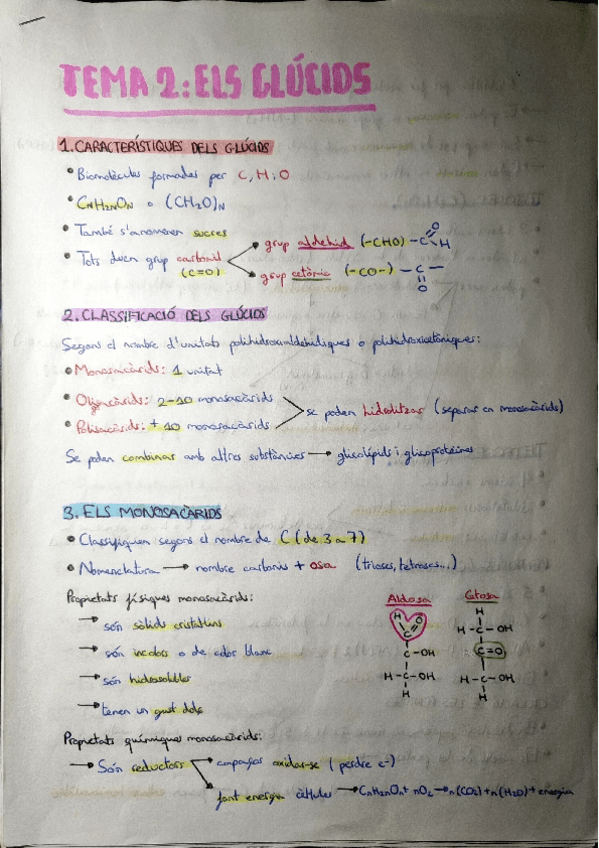 TEMA 2: ELS GLÚCIDS
1. CARACTERÍSTIQUES DELS GLÚCIDS
• Biomolècules formades per C, H i O
• CnH2nOn o (CH2O)N
• També s'anomenen sucres
• Tots duen grup carbonil (C=O)
grup aldehid (-CHO) -C O H
grup cetònic (-CO-) -C- O
2. CLASSIFICACIÓ DELS GLÚCIDS
Segons el nombre d'unitats polihidroxialdehídiques o polihidroxicetòniques:
• Monosacàrids: 1 unitat
• Oligosacàrids: 2-10 monosacàrids
• Polisacàrids: + 10 monosacàrids
se poden hidrolitzar (separar en monosacàrids)
Se poden combinar amb altres substàncies → glicolípids i glicoproteïnes
3. ELS MONOSACÀRIDS
• Classifiquen segons el nombre de C (de 3 a 7)
• Nomenclatura → nombre carbonis + osa (trioses, tetroses...)
Propietats físiques monosacàrids:
→ són sòlids cristal·lins
→ són incolors o de color blanc
→ són hidrosolubles
→ tenen un gust dolç
Aldosa
H O
C
C-OH
H-C-OH
H
Cetosa
H
H-C-OH
C=O
H-C-OH
H
Propietats químiques monosacàrids:
→ Són reductors → capaços oxidar-se (perdre e-)
→ font energia cèl·lules → CnH2nOn + nO2 → n(CO2) + n(H2O) + energia